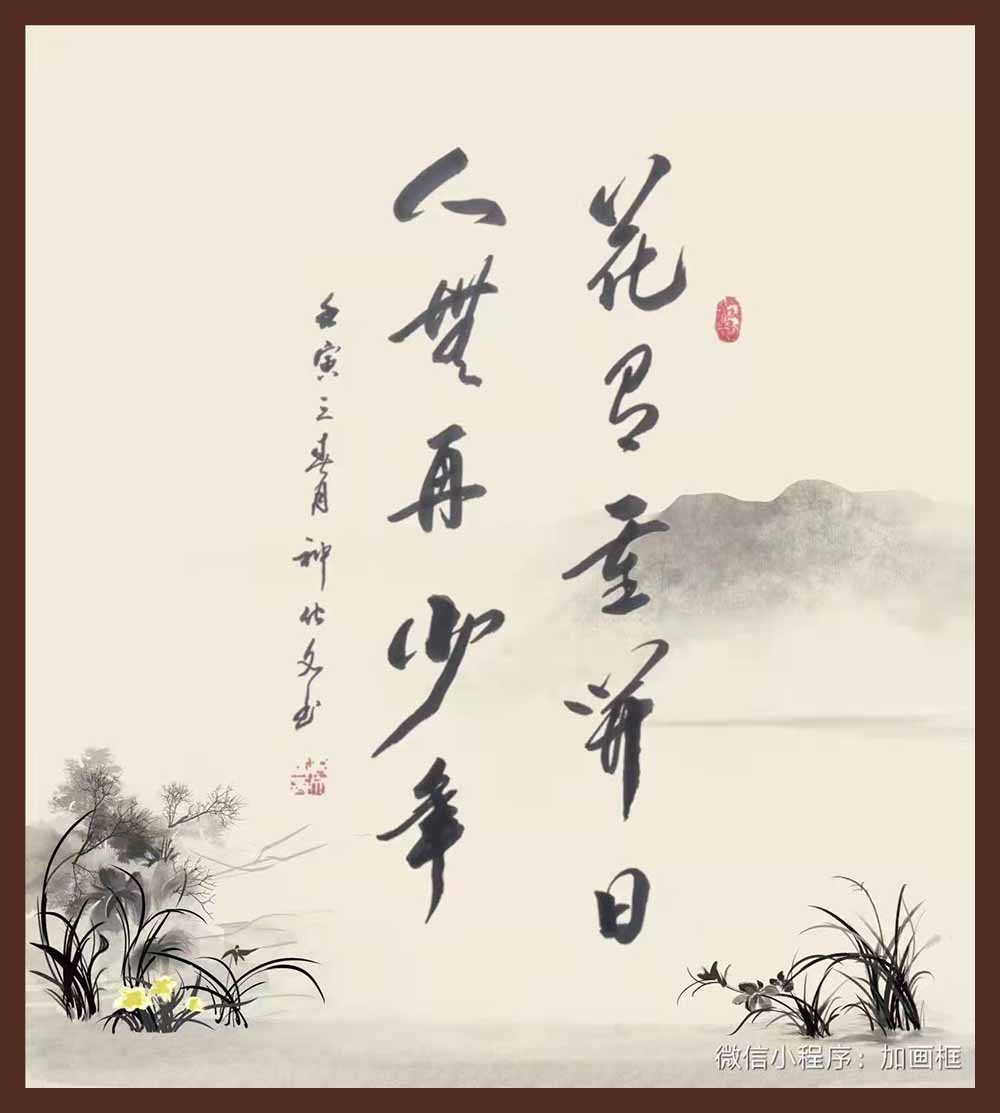 花有重開日
人無再少年
壬寅三春月神化文书
微信小程序：加画框